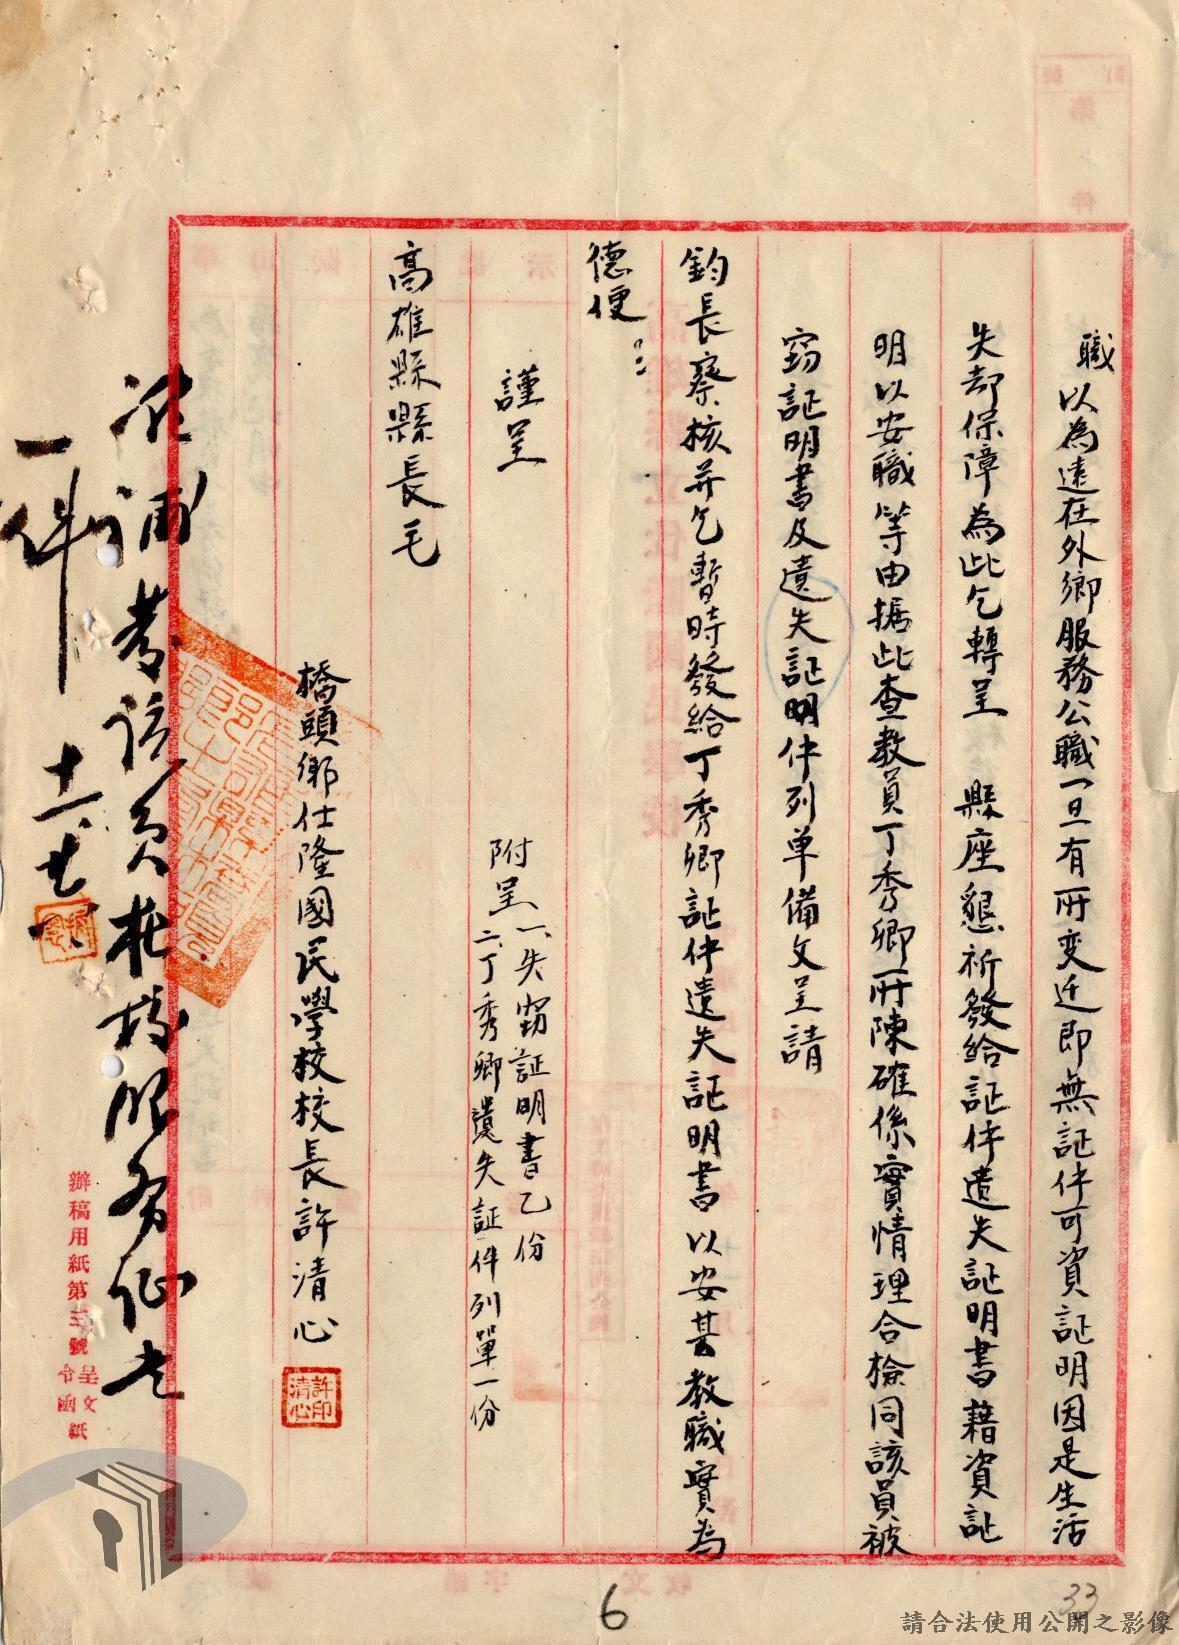 職以為遠在外鄉服務公職一旦有所变迁即無証件可資証明因是生活
失却保障為此乞轉呈 縣座懇祈發給証件遺失証明書藉資証
明以安職等由据此查教員丁秀卿所陳確係實情理合檢同該員被
竊証明書及遺失証明件列単備文呈請
鈞長察核并乞暫時發給丁秀卿証件遺失証明書以安其教職實為
德便
謹呈
附呈 一、失竊証明書乙份
二、丁秀卿遺失証件列單一份
高雄縣縣長毛
橋頭鄉仕隆國民學校校長許清心
許清心印
該員在校服務
一件
辦稿用紙第三號 呈文 令函 紙
6
33
請合法使用公開之影像